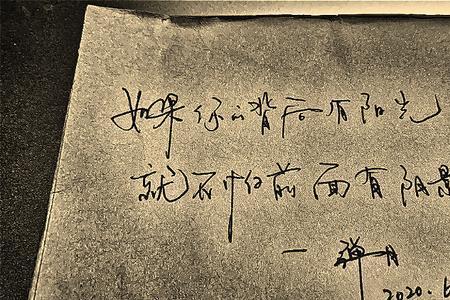 如果你的背后有阳光
就不怕前面有阴影
一禅月
2020.6